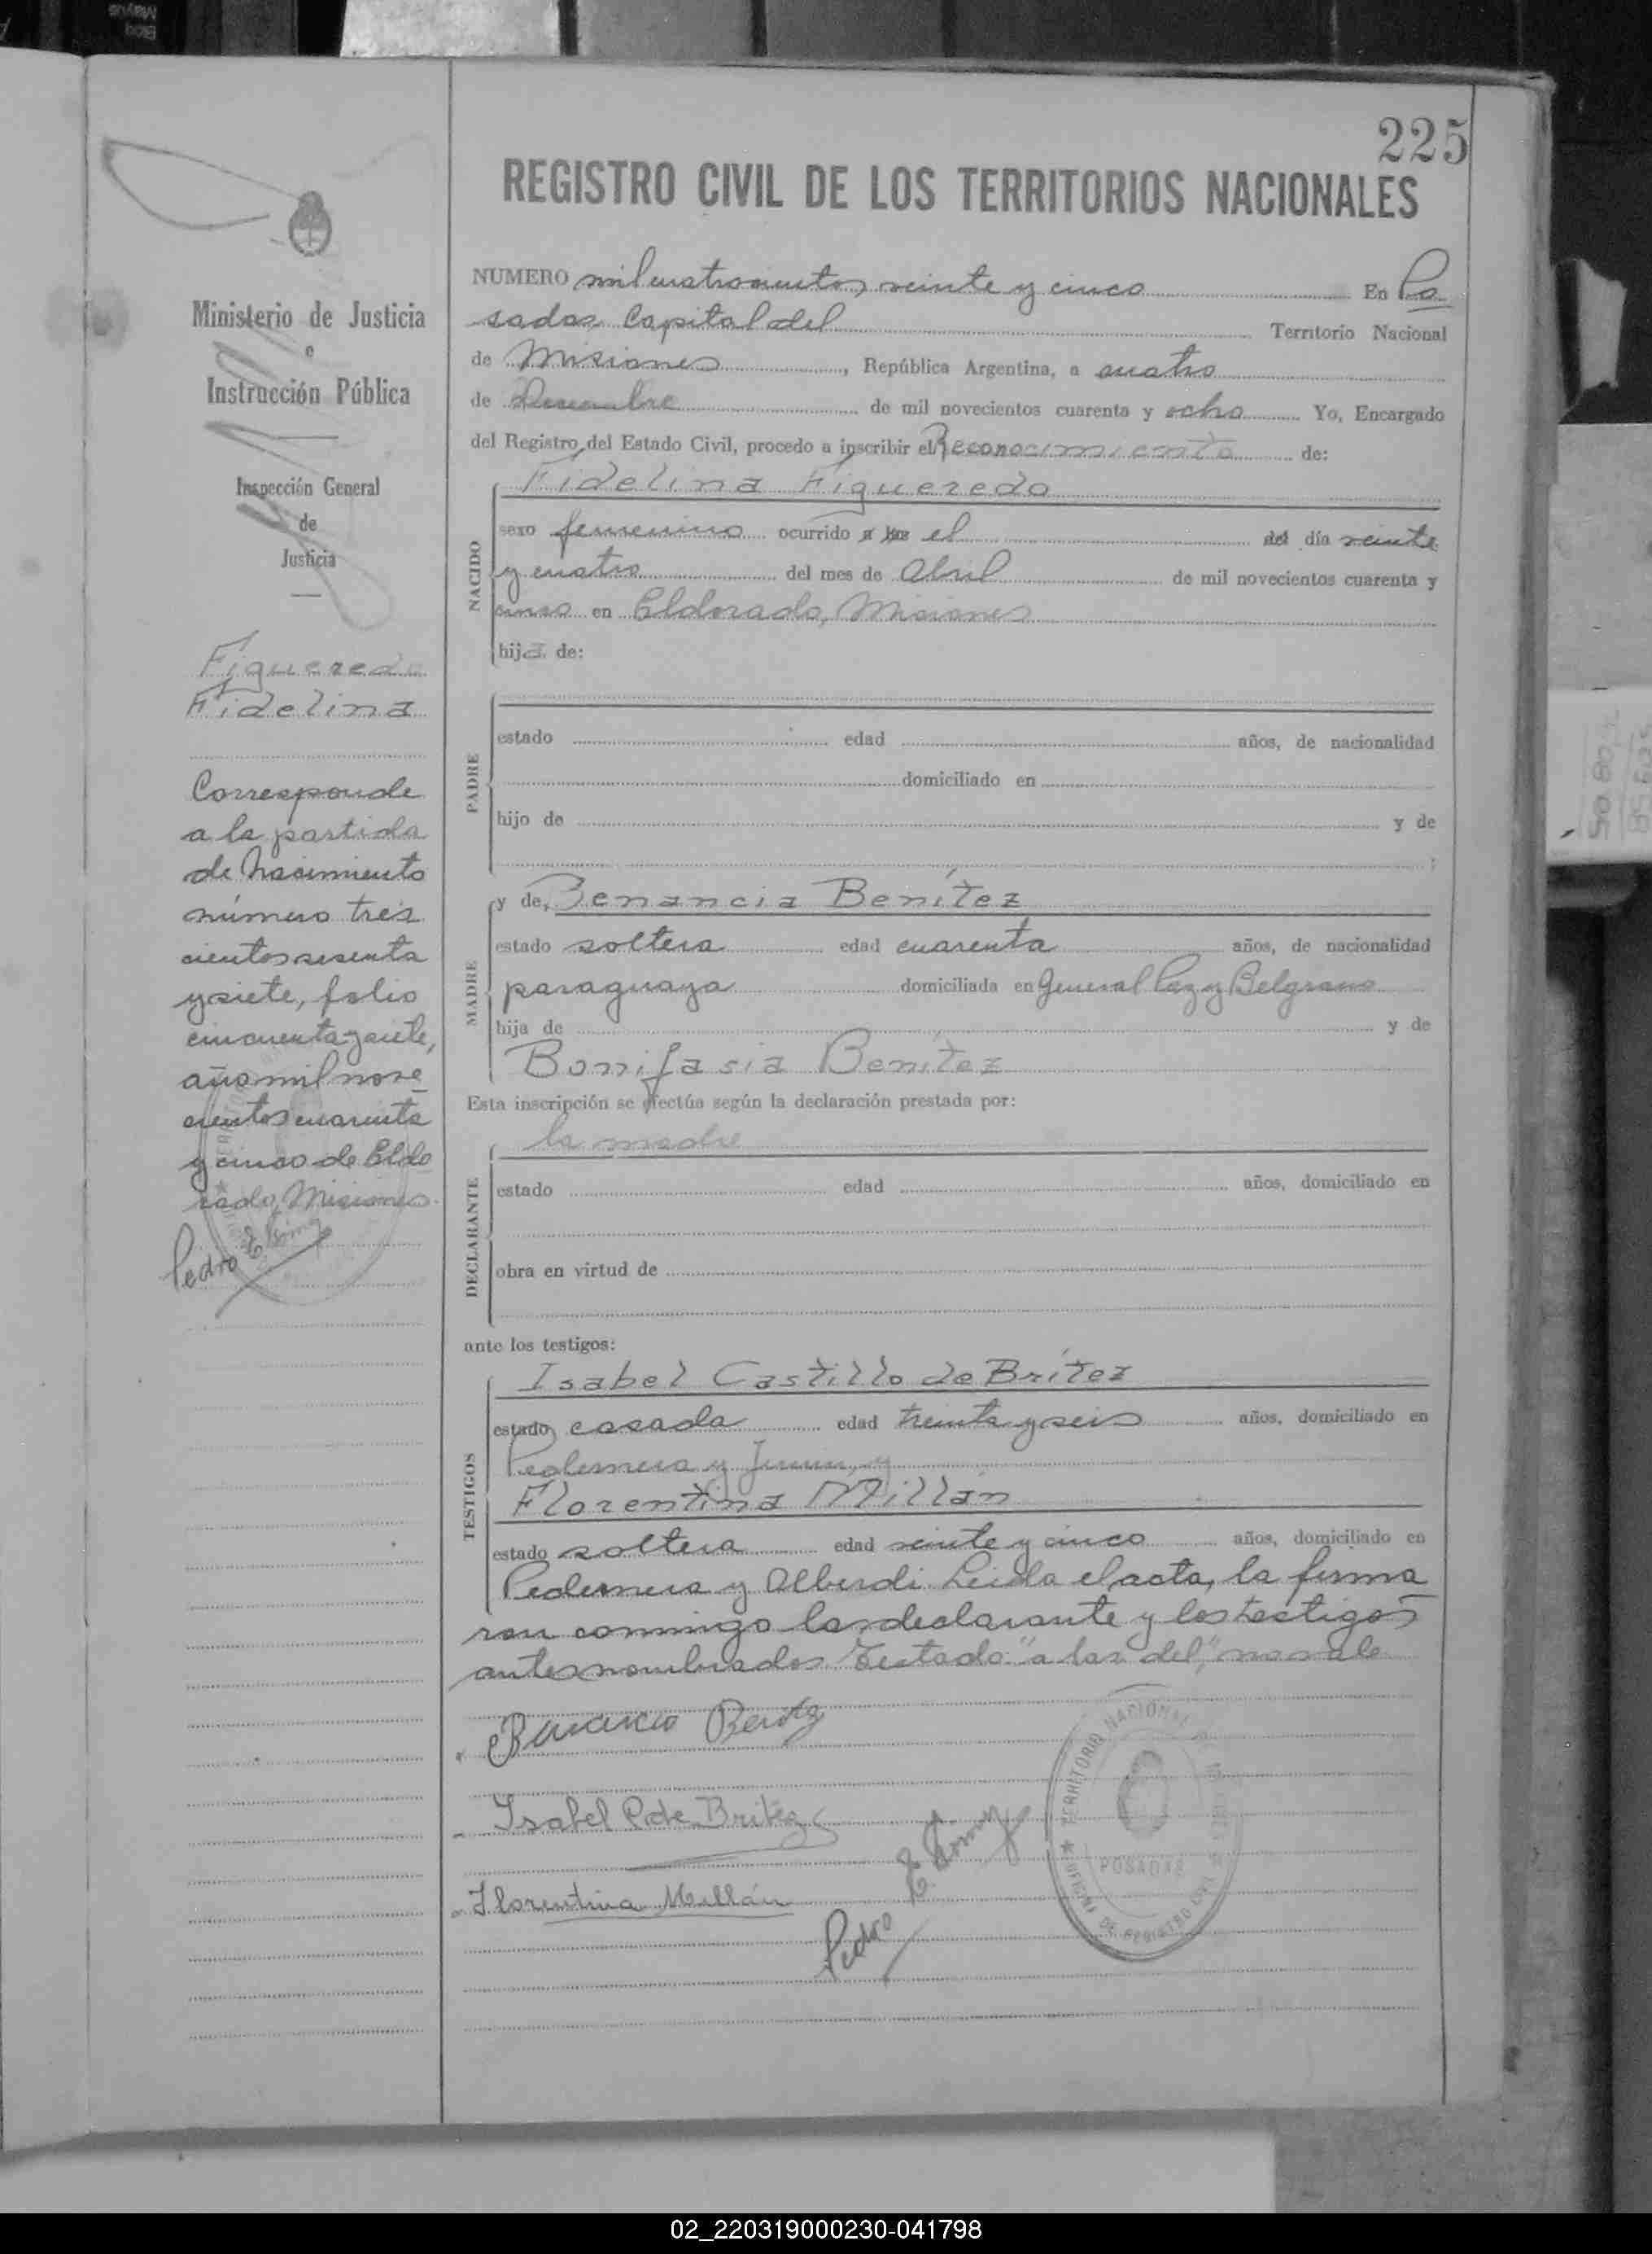 225
REGISTRO CIVIL DE LOS TERRITORIOS NACIONALES
Ministerio de Justicia
e
Instrucción Pública
Inspección General
de
Justicia
Figueredo
Fidelina
Corresponde
a la partida
de Nacimiento
número tres
cientos sesenta
y siete, folio
cincuenta y siete,
año mil nove
cientos cuarenta
y cinco de Eldo
rado, Misiones.
Pedro E.
NUMERO mil cuatrocientos veinte y cinco En Po
sadas Capital del Territorio Nacional
de Misiones, República Argentina, a cuatro
de Diciembre de mil novecientos cuarenta y ocho Yo, Encargado
del Registro del Estado Civil, procedo a inscribir el Reconocimiento de:
Fidelina Figueredo
NACIDO
sexo femenino ocurrido a las el del día veinte
y cuatro del mes de Abril de mil novecientos cuarenta y
cinco en Eldorado, Misiones
hija de:
PADRE
estado edad años, de nacionalidad
domiciliado en
hijo de y de
MADRE
y de, Benancia Benítez
estado soltera edad cuarenta años, de nacionalidad
paraguaya domiciliada en General Paz y Belgrano
hija de y de
Bonifasia Benítez
Esta inscripción se efectúa según la declaración prestada por:
la madre
DECLARANTE
estado edad años, domiciliado en
obra en virtud de
ante los testigos:
TESTIGOS
Isabel Castillo de Brítez
estado casada edad treinta y seis años, domiciliado en
Pedernera y Junín, y
Florentina Millán
estado soltera edad veinte y cinco años, domiciliado en
Pedernera y Alberdi. Leida el acta, la firma
ron conmigo la declarante y los testigos
antes nombrados. Testado: "a las del", no vale
Benancia Benitez
Isabel C de Britez
Florentina Millán
Pedro E.
TERRITORIO NACIONAL
POSADAS
OFICINA DE REGISTRO CIVIL
02_220319000230-041798